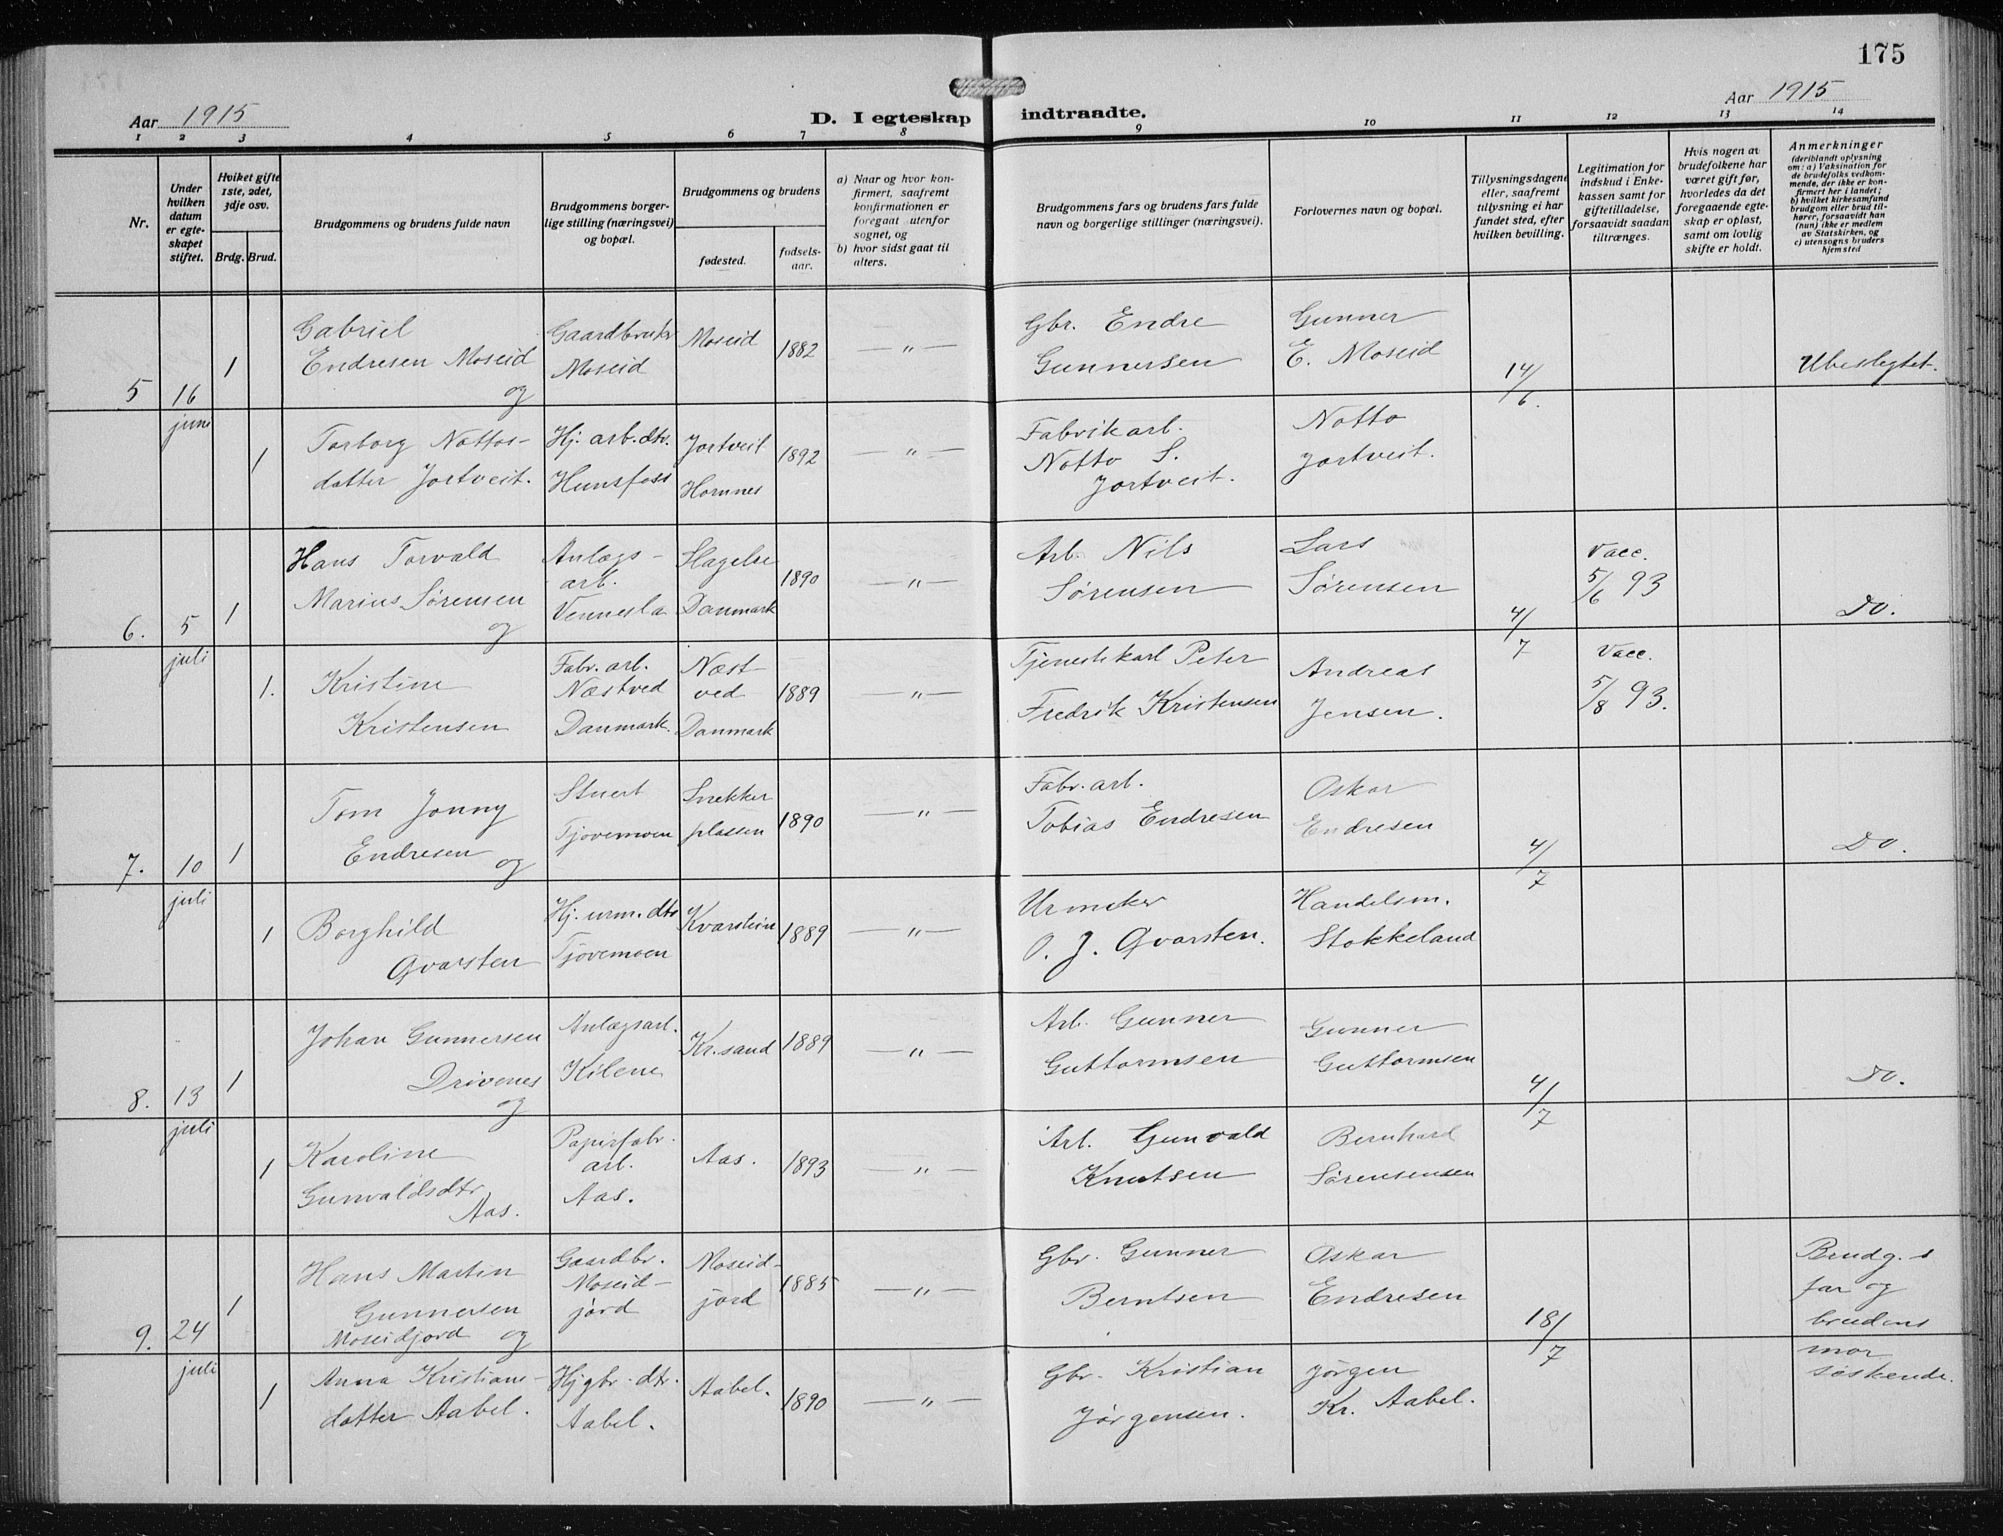 175
Aar 1915
D. I egteskap indtraadte.
Aar 1915
1 2 3 4 5 6 7 8 9 10 11 12 13 14
Nr.
Under
hvilken
datum
er egte-
skapet
stiftet.
Hviket gifte
1ste, 2det,
3dje osv.
Brdg. Brud.
Brudgommens og brudens fulde navn
Brudgommens borger-
lige stilling (næringsvei)
og bopæl.
Brudgommens og brudens
fødested.
fødsels-
aar.
a) Naar og hvor kon-
firmert, saafremt
konfirmationen er
foregaat utenfor
sognet, og
b) hvor sidst gaat til
alters.
Brudgommens fars og brudens fars fulde
navn og borgerlige stillinger (næringsvei).
Forlovernes navn og bopæl.
Tillysningsdagene
eller, saafremt
tillysning ei har
fundet sted, efter
hvilken bevilling.
Legitimation for
indskud i Enke-
kassen samt for
giftetilladelse,
forsaavidt saadan
tiltrænges.
Hvis nogen av
brudefolkene har
været gift før,
hvorledes da det
foregaaende egte-
skap er opløst,
samt om lovlig
skifte er holdt.
Anmerkninger
(deriblandt oplysning
om: a) Vaksination for
de brudefolks vedkom-
mende, der ikke er kon-
firmert her i landet;
b) hvilket kirkesamfund
brudgom eller brud til-
hører, forsaavidt han
(hun) ikke er medlem
av Statskirken, og
c) utensogns bruders
hjemsted
5 16 juni 1
Gabriel
Endresen Moseid
og
Gaardbruker
Moseid
Moseid
1882
— „ —
Gbr. Endre
Gunnersen
Gunner
E. Moseid
14/6.
Ubeslegtet.
1
Torborg Nottos-
datter Jortveit.
Hj. arb. dtr.
Hunsfoss
Jortveit
Hornnes
1892
— „ —
Fabrikarb.
Notto S.
Jortveit.
Notto
Jortveit.
6. 5 juli 1
Hans Torvald
Marius Sørensen
og
Anlægs-
arb.
Vennesla
Slagelse
Danmark
1890
— „ —
Arb. Nils
Sørensen
Lars
Sørensen
4/7
Vacc.
5/6 93
Do.
1.
Kristine
Kristensen
Fabr. arb.
Næstved
Danmark.
Næst-
ved
Danmark
1889
— „ —
Tjenestekarl Peter
Fredrik Kristensen
Andreas
Jensen.
Vacc.
5/8 93.
7. 10 juli 1
Tom Jonny
Endresen og
Stuert
Tjovemoen
Snekker
plassen
1890
— „ —
Fabr. arb.
Tobias Endresen
Oskar
Endresen
4/7
Do.
1
Borghild
Qvarsten
Hj. urm. dtr
Tjovemoen
Kvarstein
1889
— „ —
Urmaker
O. J. Qvarsten.
Handelsm.
Stokkeland
8. 13 juli 1
Johan Gunnersen
Drivenes
og
Anlægsarb.
Kilene
Kr.sand
1889
— „ —
Arb. Gunner
Guttormsen
Gunner
Guttormsen
4/7
Do.
1
Karoline
Gunvaldsdtr
Aas.
Papirfabr.
arb.
Aas.
Aas.
1893
— „ —
Arb. Gunvald
Knutsen
Bernhard
Sørensensen
9. 24 juli 1
Hans Martin
Gunnersen
Moseidjord og
Gaardbr.
Moseid-
jord
Moseid-
jord
1885
— „ —
Gbr. Gunner
Berntsen
Oskar
Endresen
18/7
Brudg.s
far og
brudens
mor
søskende.
1
Anna Kristians-
datter Aabel.
Hj gbr. dtr.
Aabel.
Aabel.
1890
— „ —
Gbr. Kristian
Jørgensen.
Jørgen
Kr. Aabel.